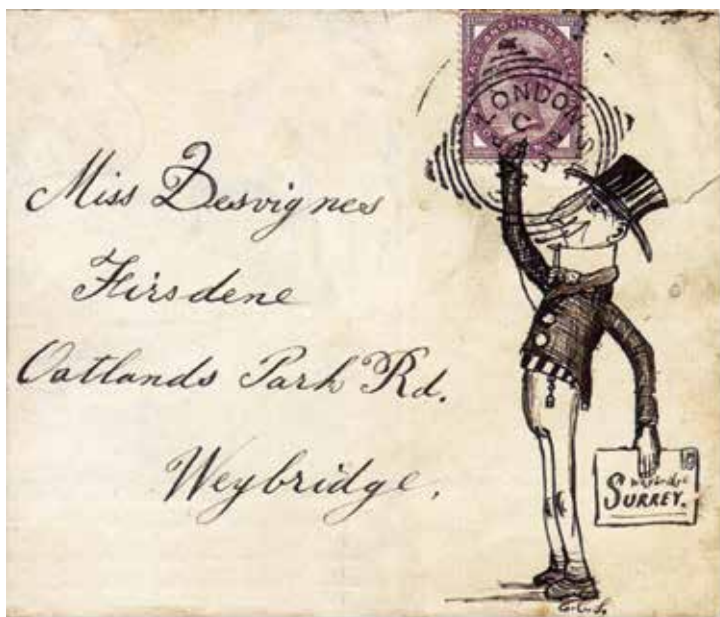 LONDON
Miss Desvignes
Firsdene
Oatlands Park Rd.
Weybridge.
Weybridge
SURREY.